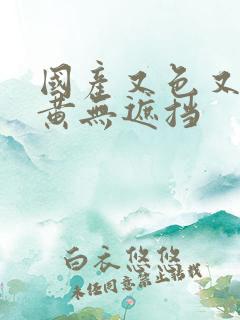 國產又色又
黄無遮挡
白衣悠悠
未经同意禁止转载